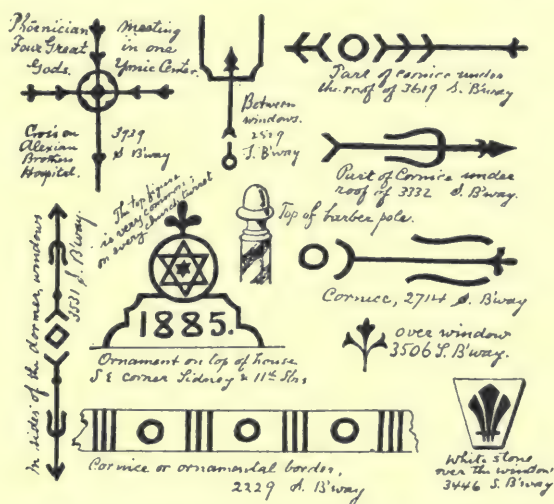 Phoenician
Four Great
Gods.
Meeting
in one
Yonic Center.
Cross on
Alexian
Brothers
Hospital.
3939
S B'way
Between
windows.
2529
S. B'way
Part of cornice under
the roof of 3619 S. B'way
Part of Cornice under
roof of 3332 S. B'way.
In sides of the dormer, windows
3531 S. B'way.
The top figure
is very common;
on every church turret
Top of barber pole.
1885.
Ornament on top of house
S E corner Sidney & 11th Sts,
Cornice, 2714 S. B'way
over window
3506 S. B'way.
Cornice or ornamental border,
2229 S. B'way
White stone
over the window
3446 S. B'way